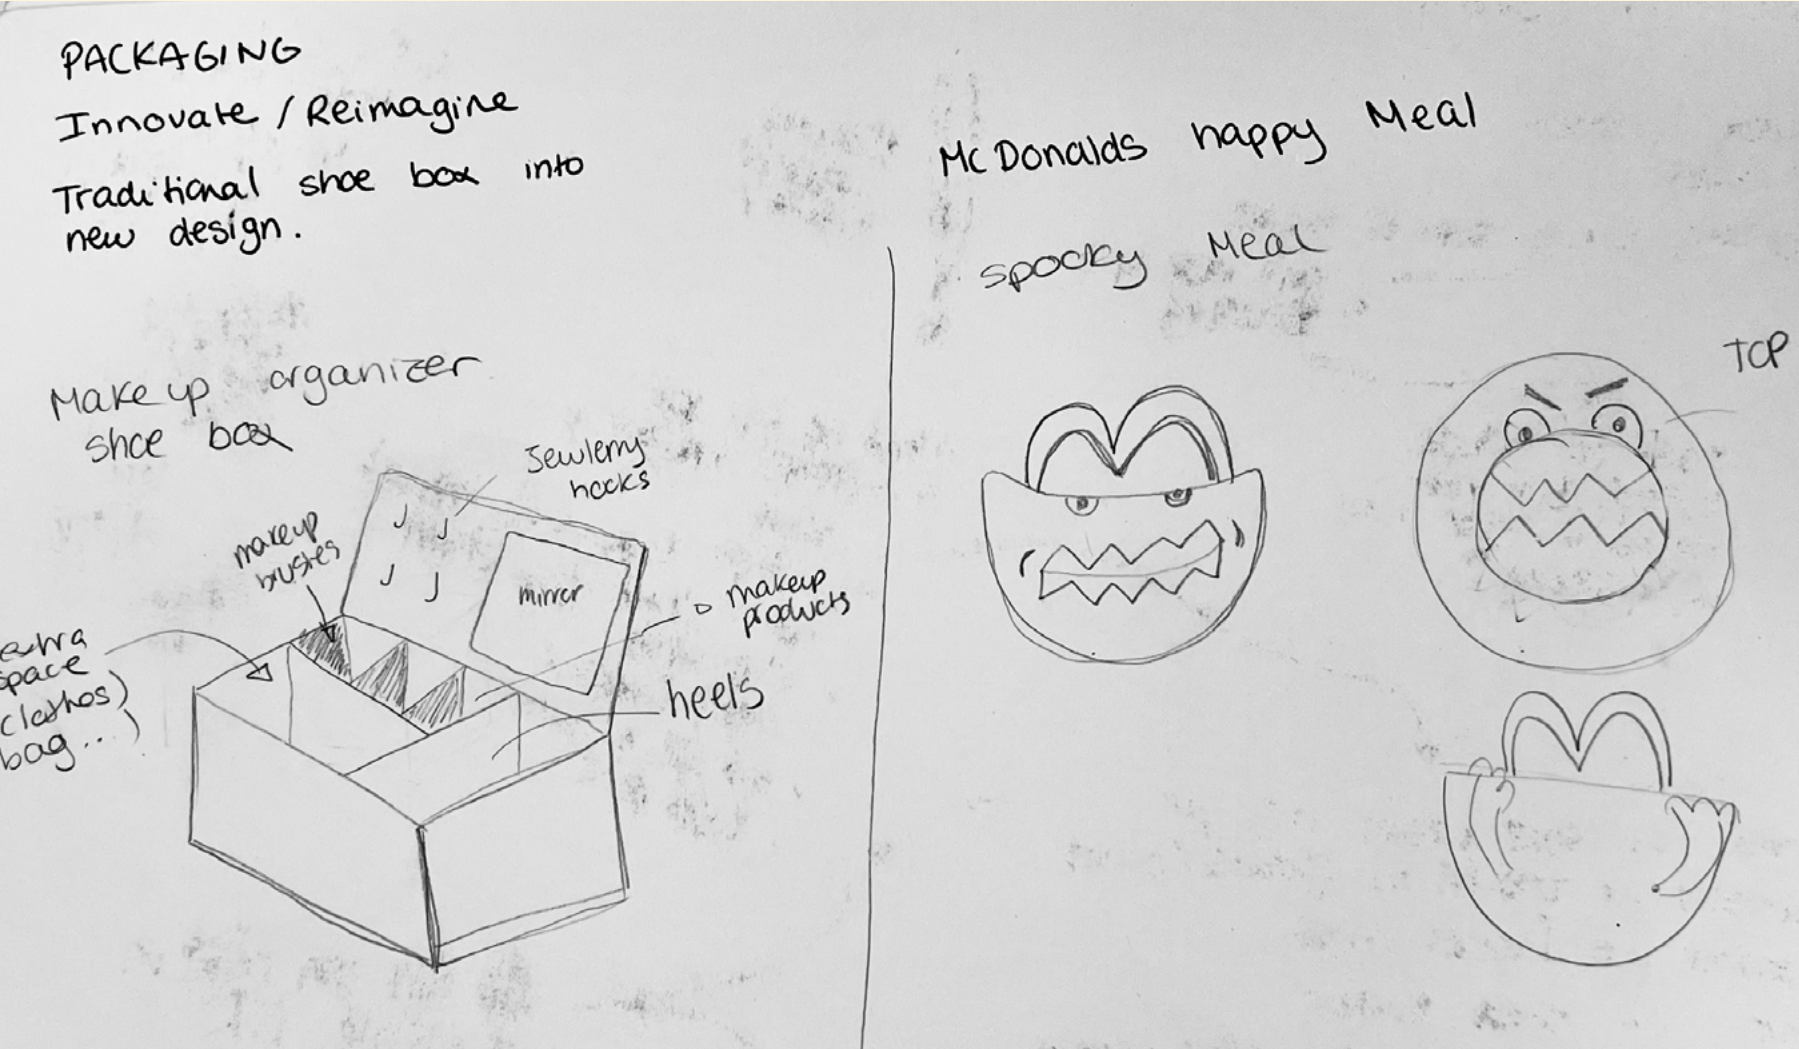 PACKAGING
Innovate / Reimagine
Traditional shoe box into
new design.
Makeup organizer
shoe box
Jewlerry
hooks
makeup
brushes
mirror
makeup
products
extra
space
(clothos)
bag...)
heels
McDonalds happy Meal
spooky Meal
TOP